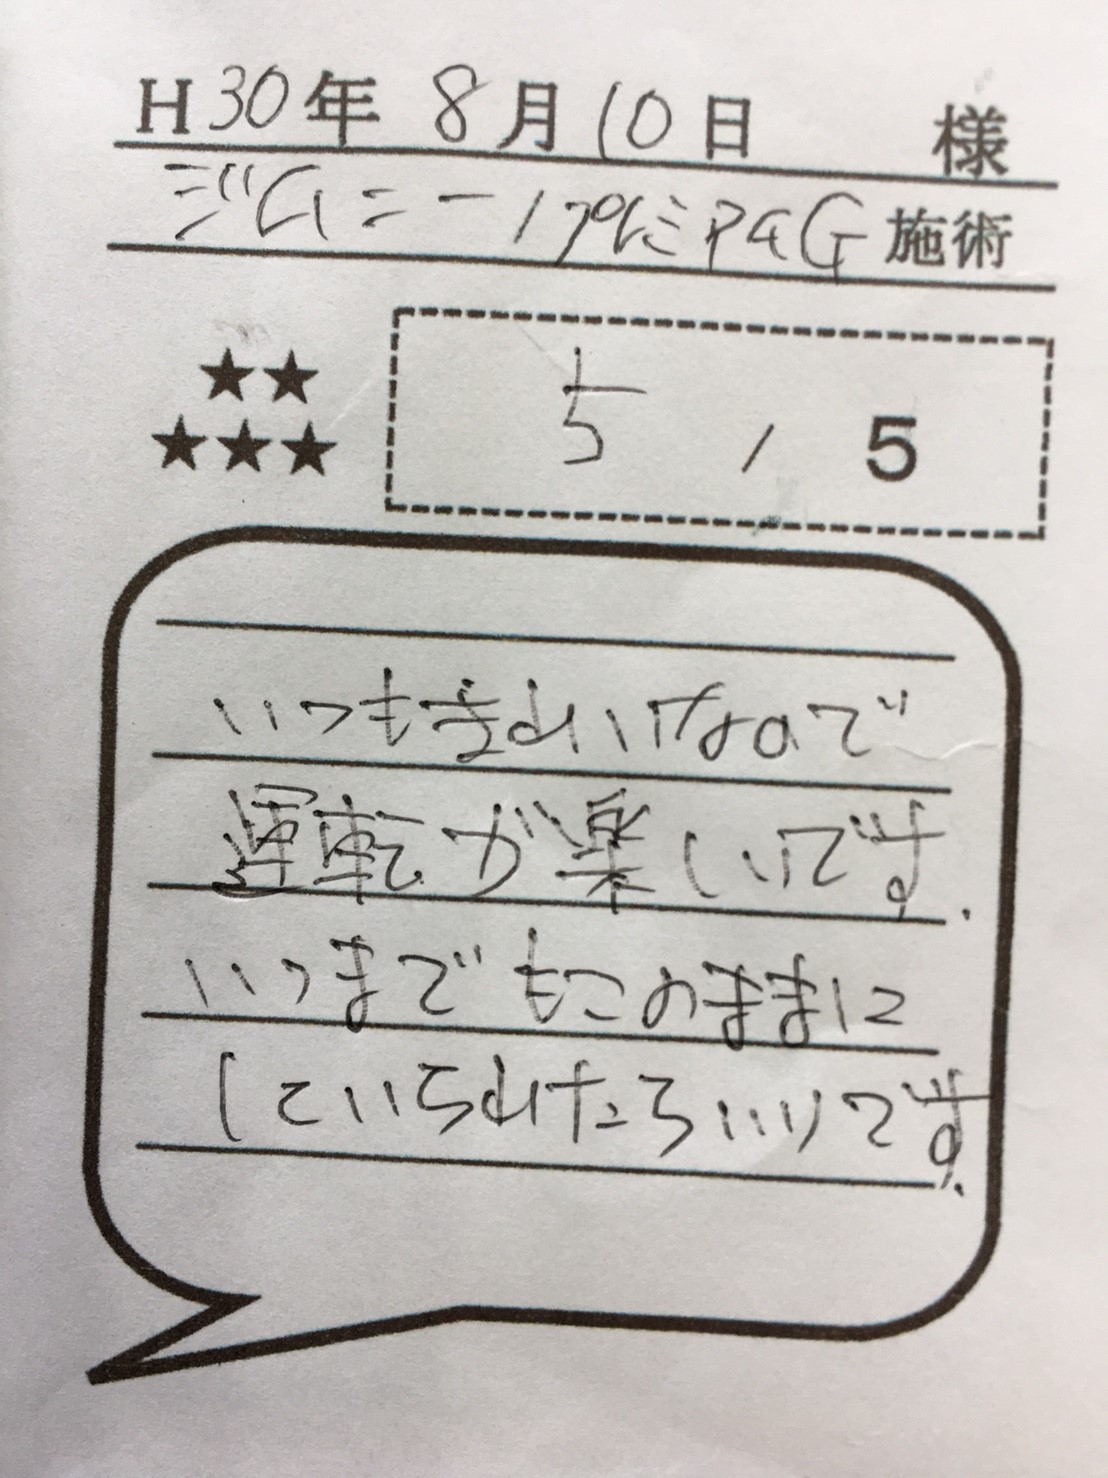 H30年 8月10日 様
ジムニー/プレミアムG 施術
★★
★★★
5 / 5
いつもきれいなので
運転が楽しいです.
いつまでもこのままに
していられたらいいです.